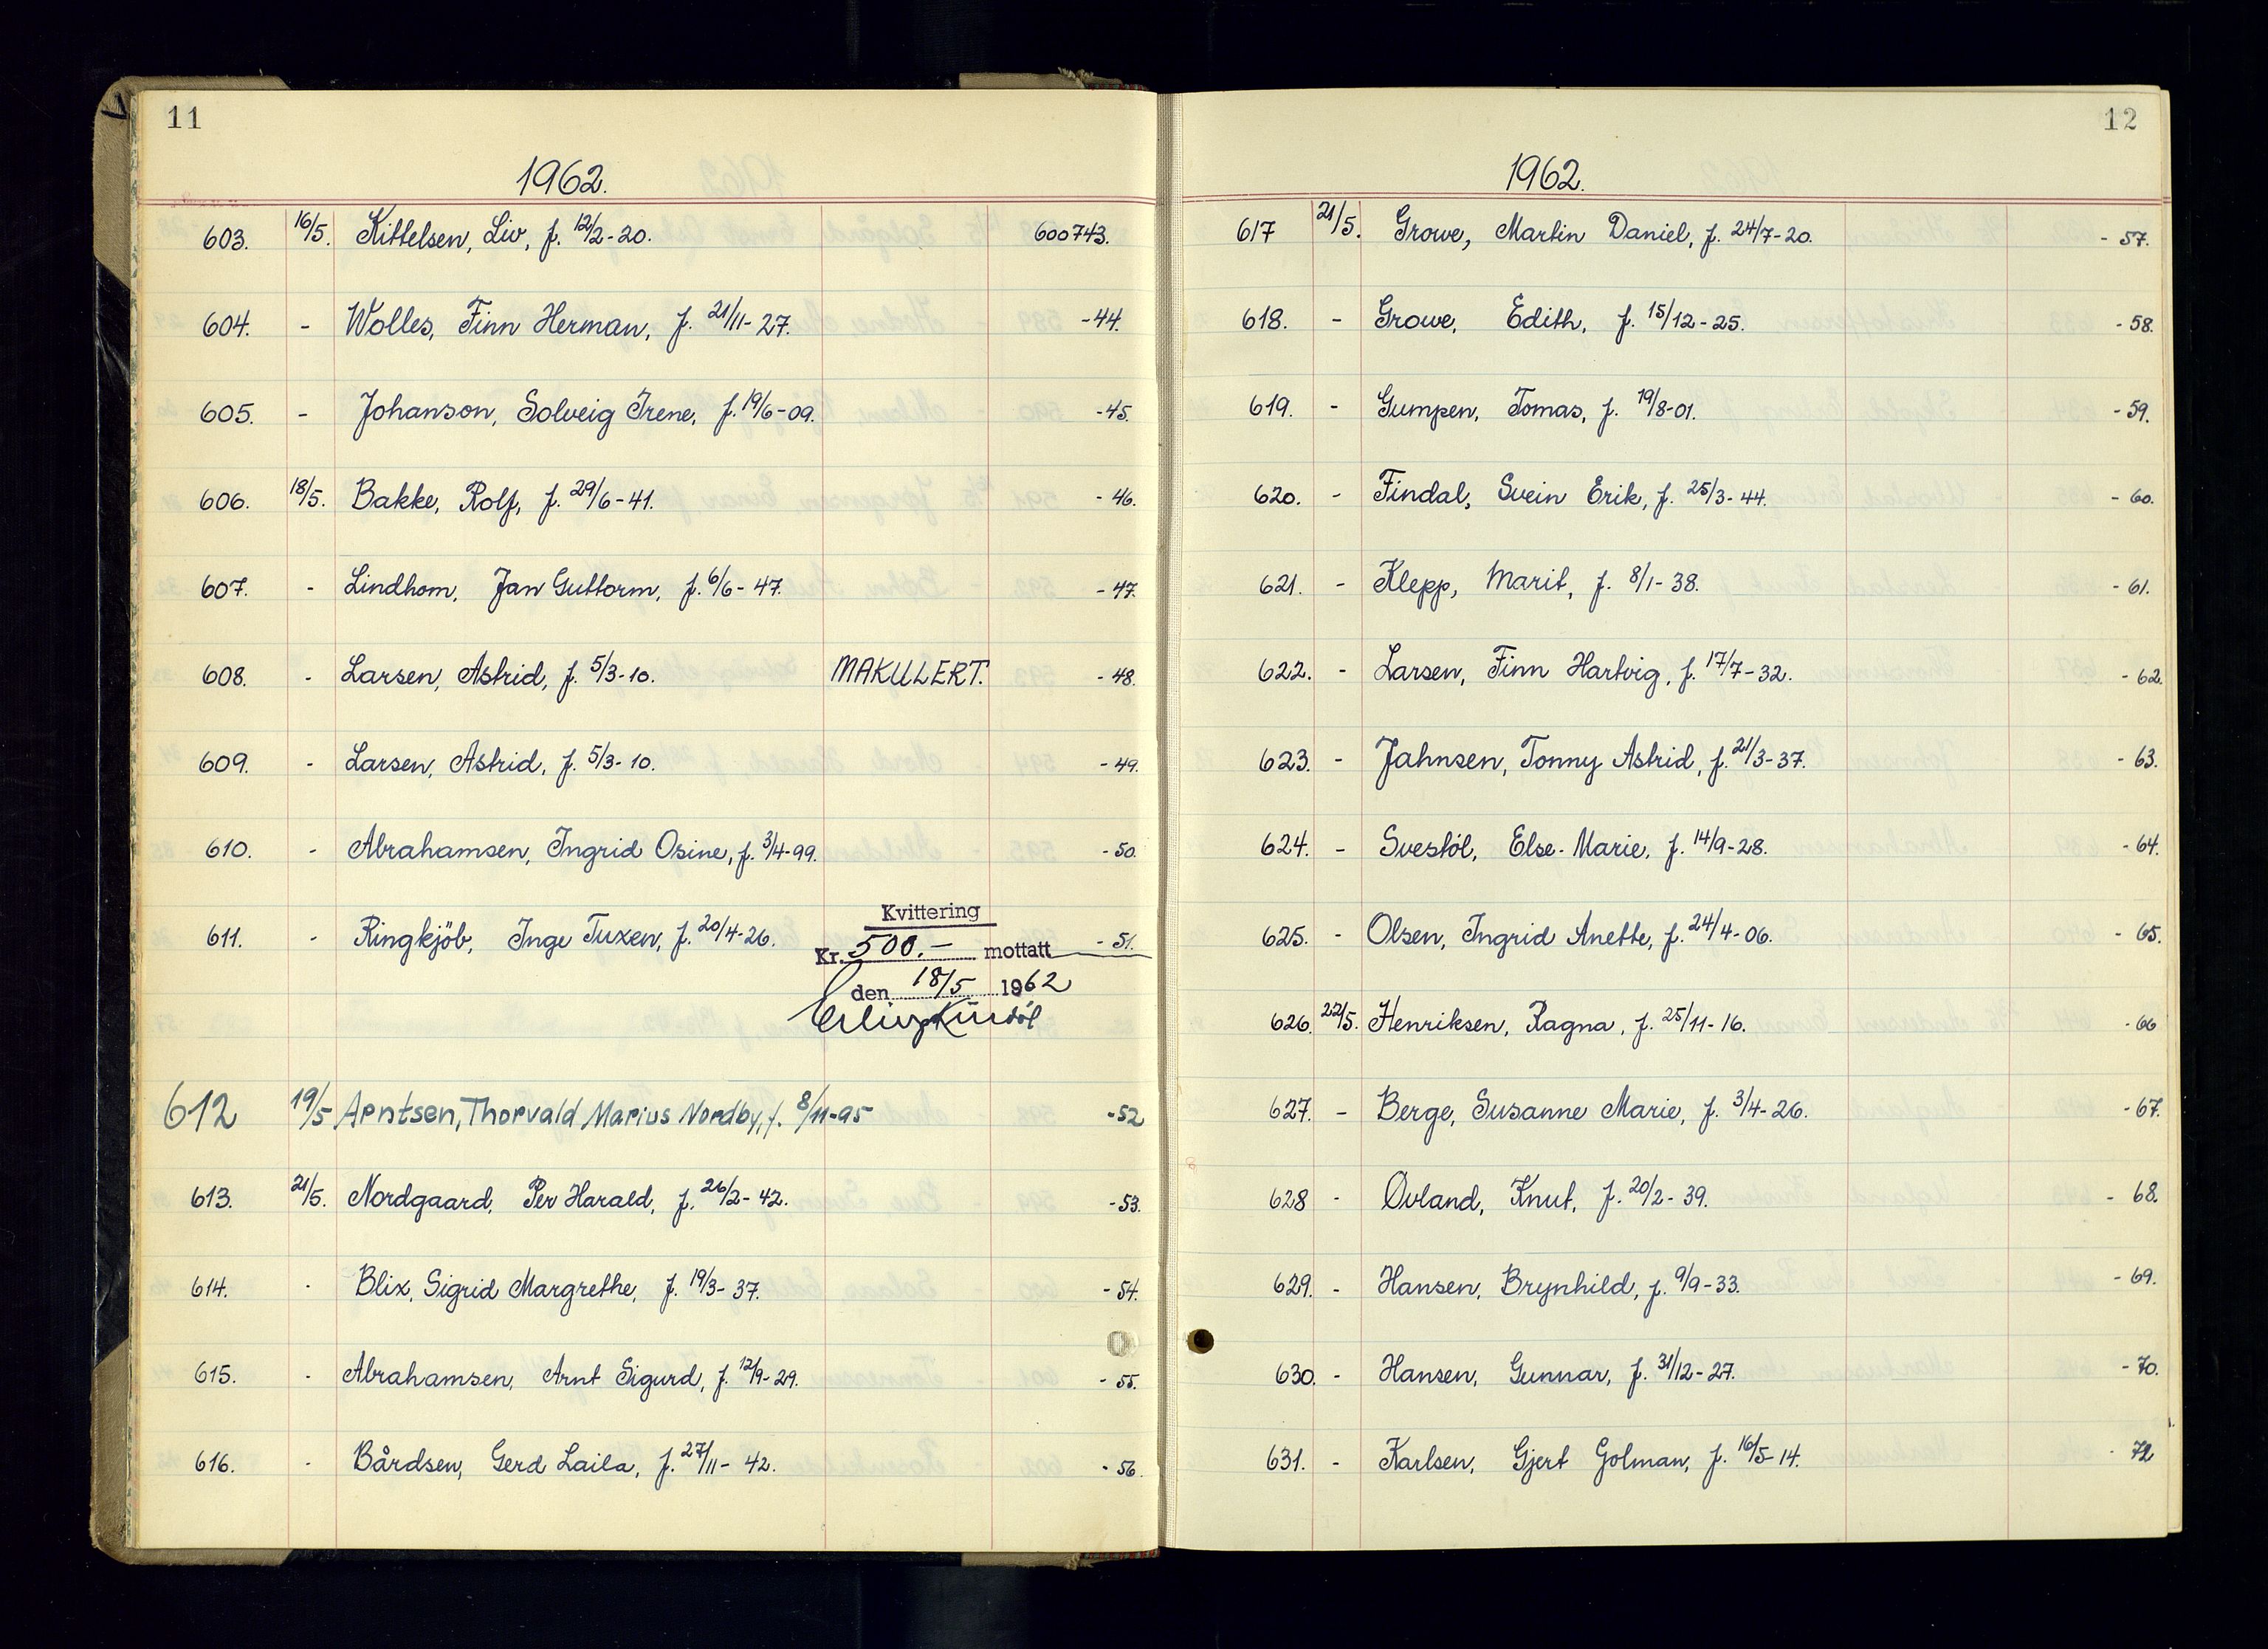 11
1962.
603. 16/5. Kittelsen, Liv, f. 12/2-20. 600743.
604. - Wolles, Finn Herman, f. 21/11-27. -44.
605. - Johanson, Solveig Irene, f. 19/6-09. -45.
606. 18/5. Bakke, Rolf, f. 29/6-41. -46.
607. - Lindhom, Jan Guttorm, f. 6/6-47. -47.
608. - Larsen, Astrid, f. 5/3-10. MAKULERT. -48.
609. - Larsen, Astrid, f. 5/3-10. -49.
610. - Abrahamsen, Ingrid Osine, f. 3/4-99. -50.
611. - Ringkjöb, Inge Tuxen, f. 20/4-26. -51.
Kvittering
Kr. 500.- mottatt
den 18/5 1962
612 19/5 Arntsen, Thorvald Marius Nordby, f. 8/11-95 -52
613. 21/5. Nordgaard, Per Harald, f. 26/2-42. -53.
614. - Blix, Sigrid Margrethe, f. 19/3-37. -54.
615. - Abrahamsen, Arnt Sigurd, f. 12/9-29. -55.
616. - Bårdsen, Gerd Laila, f. 27/11-42. -56.
12
1962.
617 21/5. Growe, Martin Daniel, f. 24/7-20. -57.
618. - Growe, Edith, f. 15/12-25. -58.
619. - Gumpen, Tomas, f. 19/8-01. -59.
620. - Findal, Svein Erik, f. 25/3-44. -60.
621. - Klepp, Marit, f. 8/1-38. -61.
622. - Larsen, Finn Hartvig, f. 17/7-32. -62.
623. - Jahnsen, Tonny Astrid, f. 21/3-37. -63.
624. - Svestöl, Else-Marie, f. 14/9-28. -64.
625. - Olsen, Ingrid Anette, f. 24/4-06. -65.
626. 22/5. Henriksen, Ragna, f. 25/11-16. -66
627. - Berge, Susanne Marie, f. 3/4-26. -67.
628 - Ovland, Knut, f. 20/2-39. -68.
629. - Hansen, Brynhild, f. 9/9-33. -69.
630. - Hansen, Gunnar, f. 31/12-27. -70.
631. - Karlsen, Gjert Golman, f. 16/5-14.